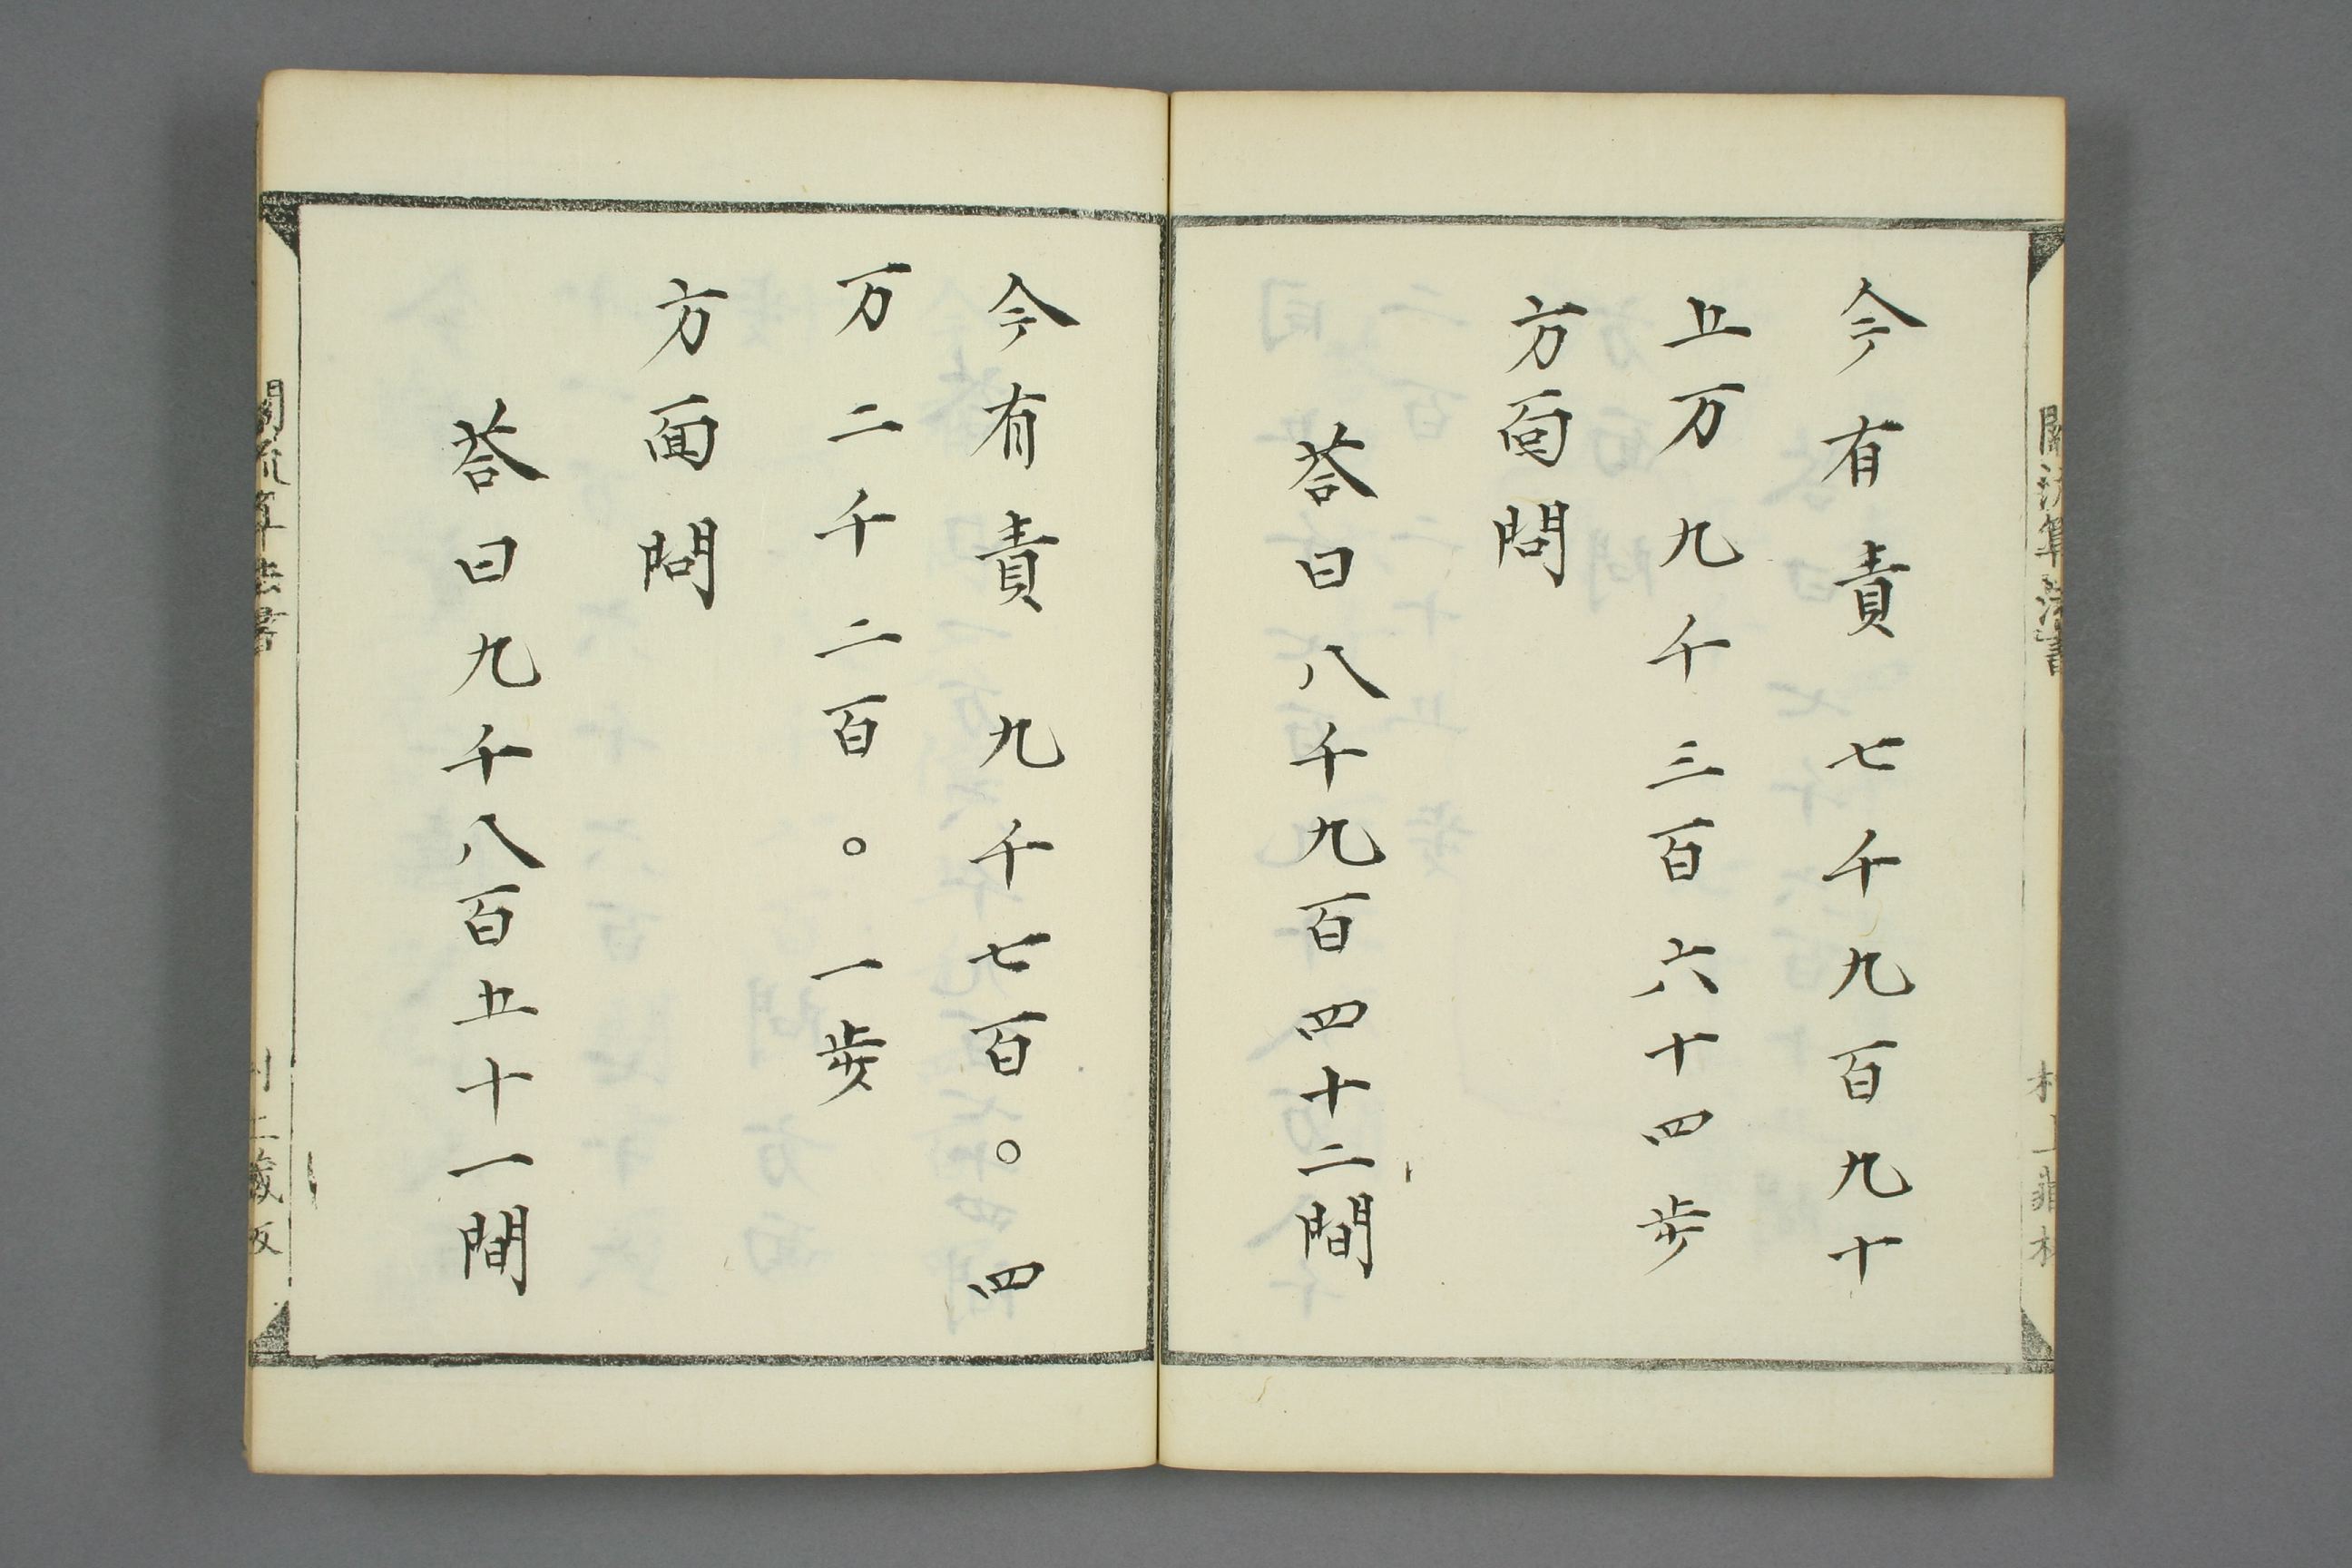 今有責七千九百九十
五万九千三百六十四歩
方面問
荅曰八千九百四十二間
今有責九千七百〇四
万二千二百〇一歩
方面問
荅曰九千八百五十一間
關流算法書